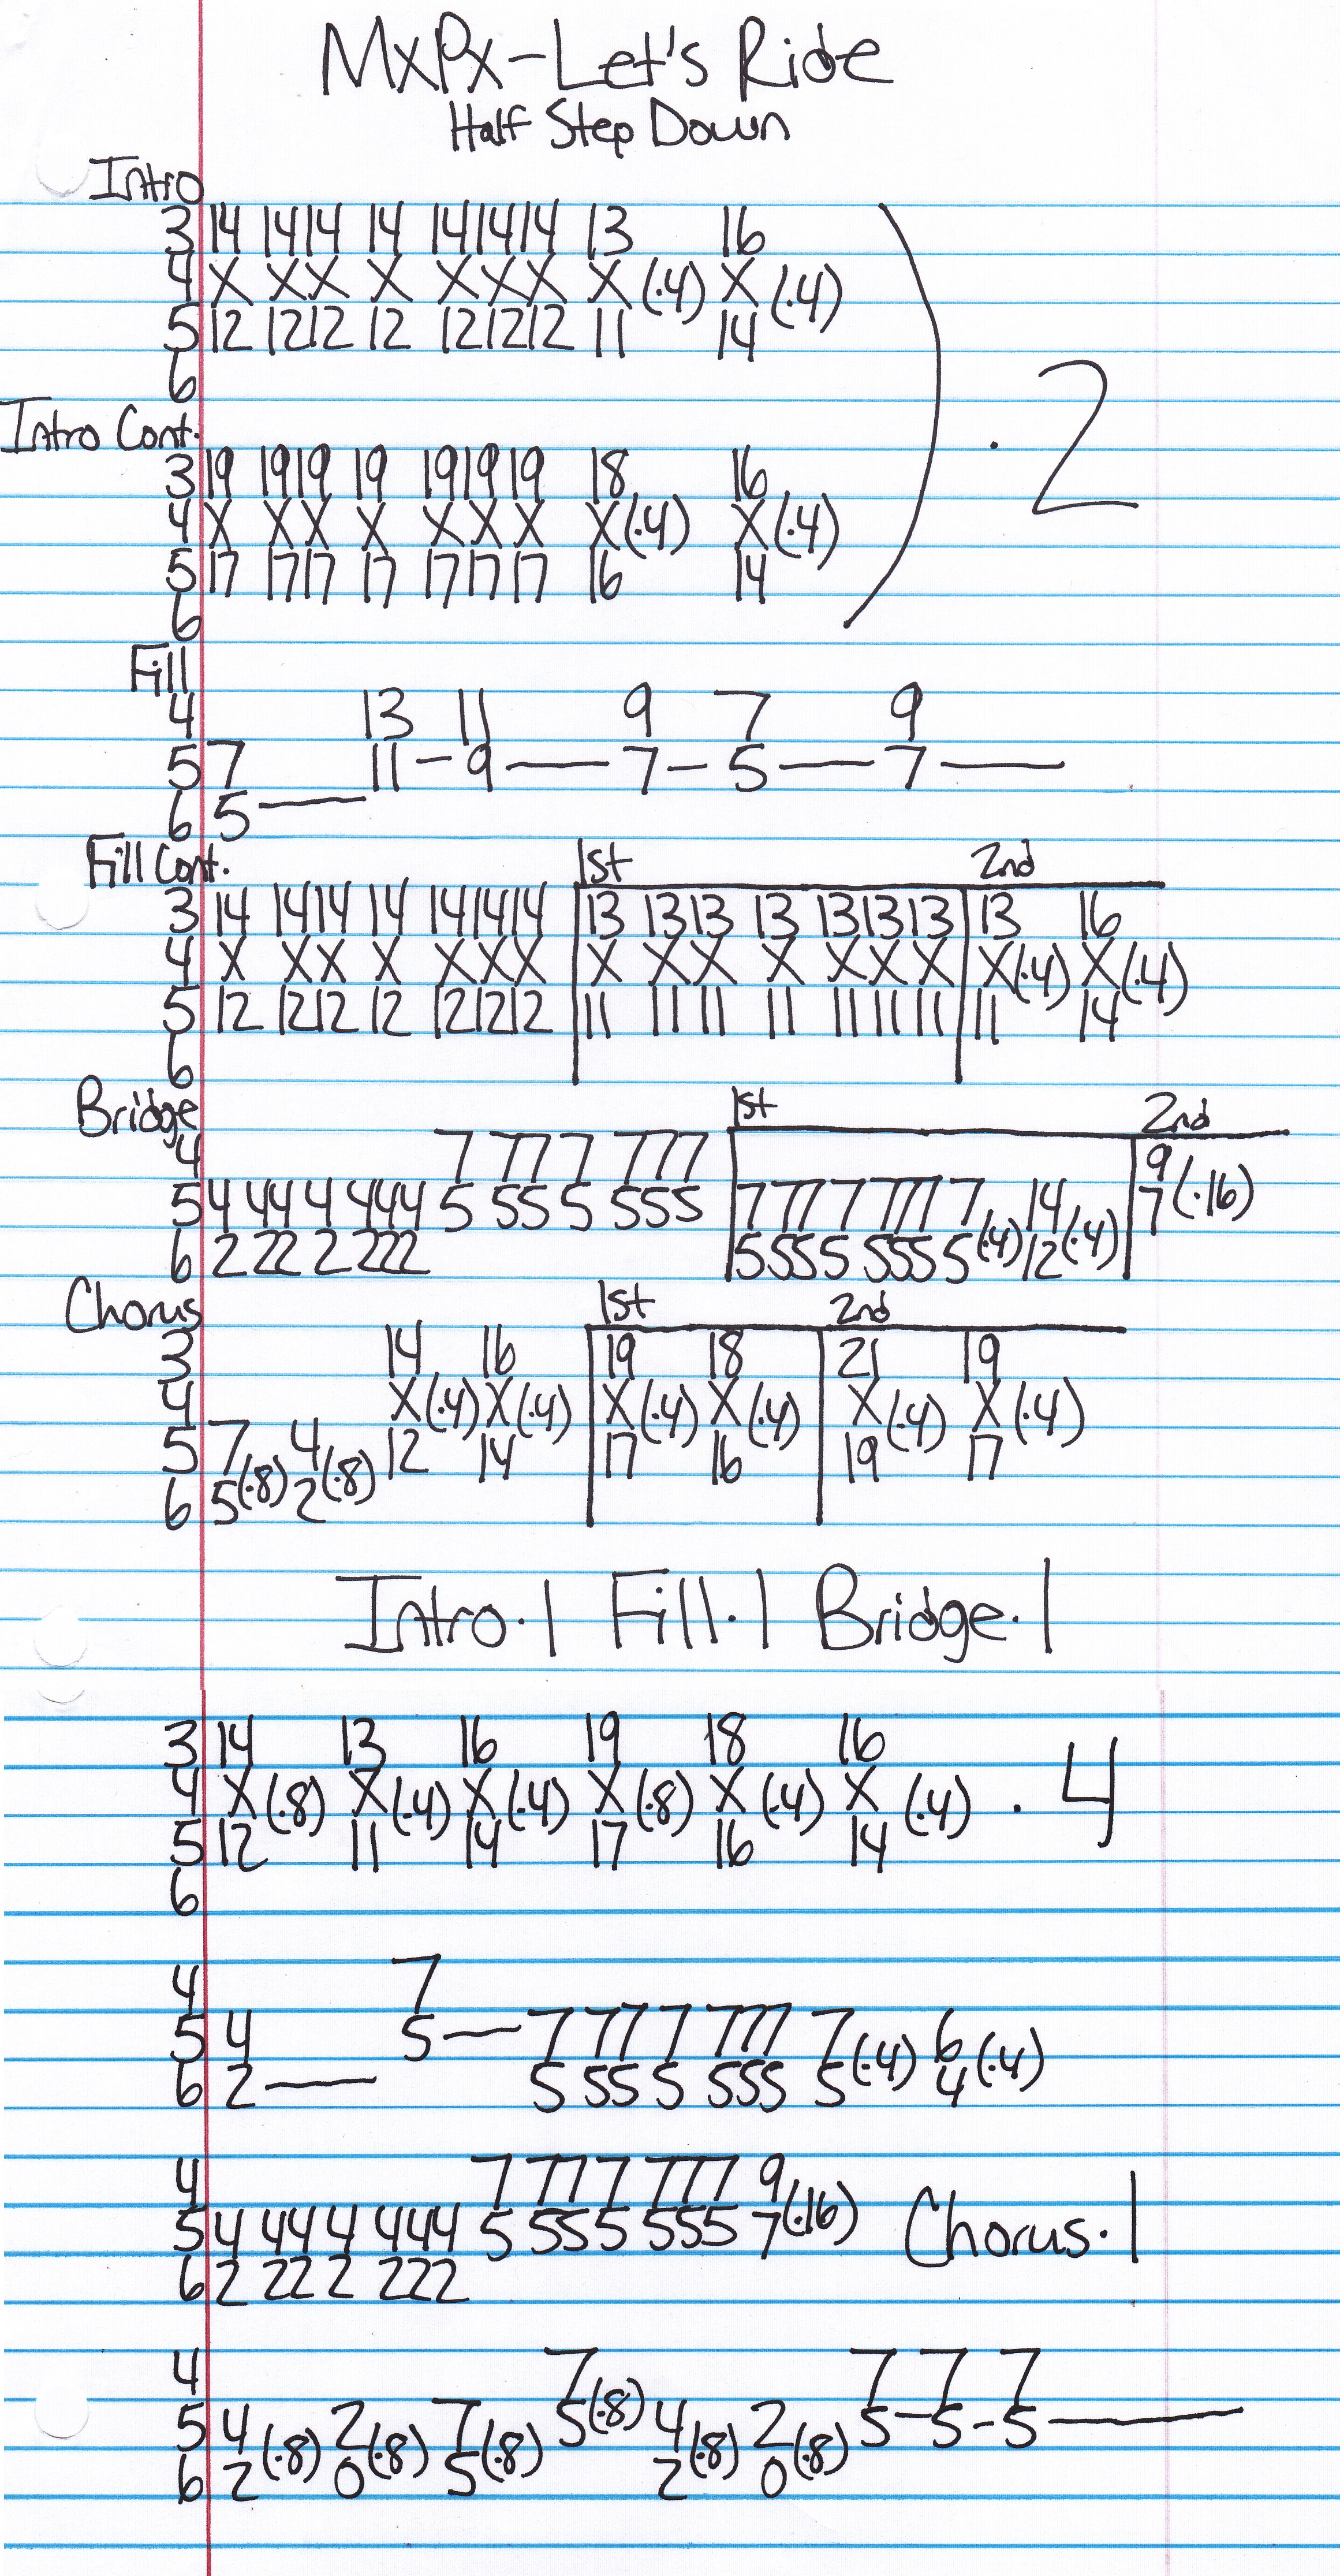 MxPx-Let's Ride
Half Step Down
Intro
3 14 14 14 14 14 14 14 13 16
4 X X X X X X X X (·4) X (·4)
5 12 12 12 12 12 12 12 11 14
6
) · 2
Intro Cont.
3 19 19 19 19 19 19 19 18 16
4 X X X X X X X X (·4) X (·4)
5 17 17 17 17 17 17 17 16 14
6
Fill
4 13 11 9 7 9
5 7 11 - 9 — 7 - 5 — 7 —
6 5 —
Fill Cont. 1st 2nd
3 14 14 14 14 14 14 14 | 13 13 13 13 13 13 13 | 13 16
4 X X X X X X X | X X X X X X X | X (·4) X (·4)
5 12 12 12 12 12 12 12 | 11 11 11 11 11 11 11 | 11 14
6
Bridge 1st 2nd
4 7 77 7 777 | | 9
5 4 44 4 444 5 55 5 555 | 7 77 7 777 7 14 | 7 (·16)
6 2 22 2 222 | 5 55 5 555 5 (·4) 12 (·4) |
Chorus 1st 2nd
3 14 16 | 19 18 | 21 19
4 X (·4) X (·4) | X (·4) X (·4) | X (·4) X (·4)
5 7 4 12 14 | 17 16 | 19 17
6 5 (·8) 2 (·8)
Intro·1 Fill·1 Bridge·1
3 14 13 16 19 18 16
4 X (·8) X (·4) X (·4) X (·8) X (·4) X (·4) · 4
5 12 11 14 17 16 14
6
4 7
5 4 5 — 7 77 7 777 7 6
6 2 — 5 55 5 555 5 (·4) 4 (·4)
4 7 77 7 777 9
5 4 44 4 444 5 55 5 555 7 (·16) Chorus·1
6 2 22 2 222
4 7 7 7 7
5 4 2 7 5 (·8) 4 2 5 - 5 - 5 —
6 2 (·8) 0 (·8) 5 (·8) 2 (·8) 0 (·8)